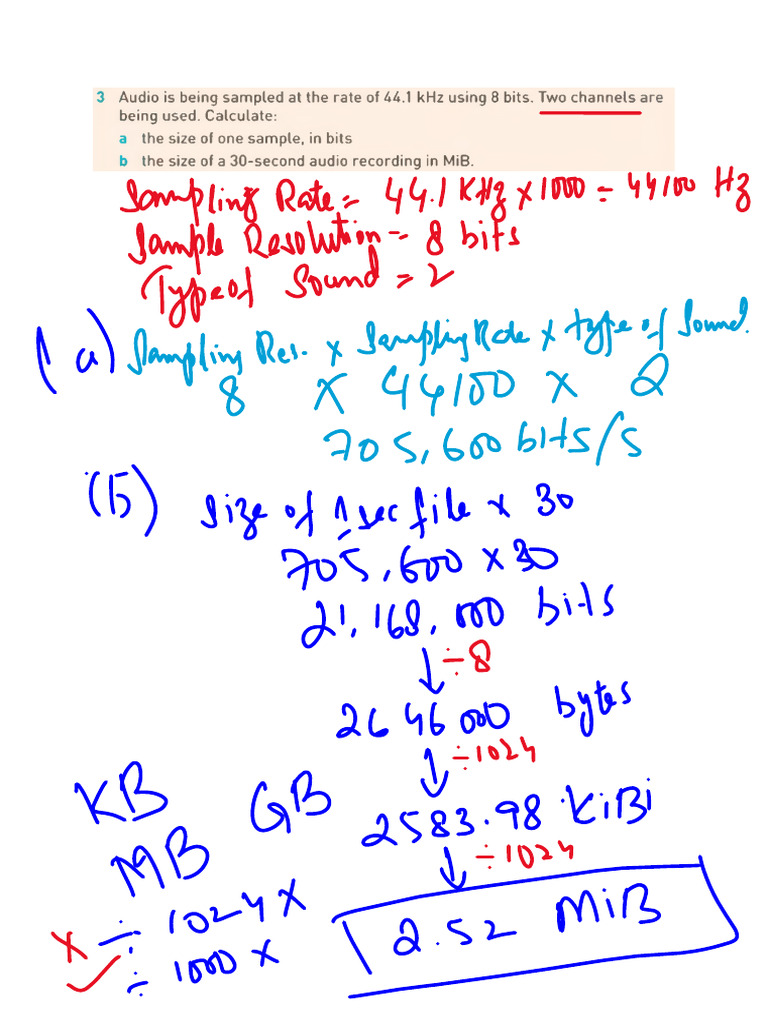 3 Audio is being sampled at the rate of 44.1 kHz using 8 bits. Two channels are
being used. Calculate:
a the size of one sample, in bits
b the size of a 30-second audio recording in MiB.
Sampling Rate = 44.1 KHz x 1000 = 44100 Hz
Sample Resolution = 8 bits
Type of Sound = 2
(a) Sampling Res. x Sampling Rate x type of Sound.
8 x 44100 x 2
705,600 bits/s
(b) Size of 1 sec file x 30
705,600 x 30
21,168,000 bits
↓ ÷8
2646000 bytes
↓ ÷1024
KB GB 2583.98 KiBi
MB ↓ ÷1024
x ÷ 1024 x 2.52 MiB
✓ ÷ 1000 x